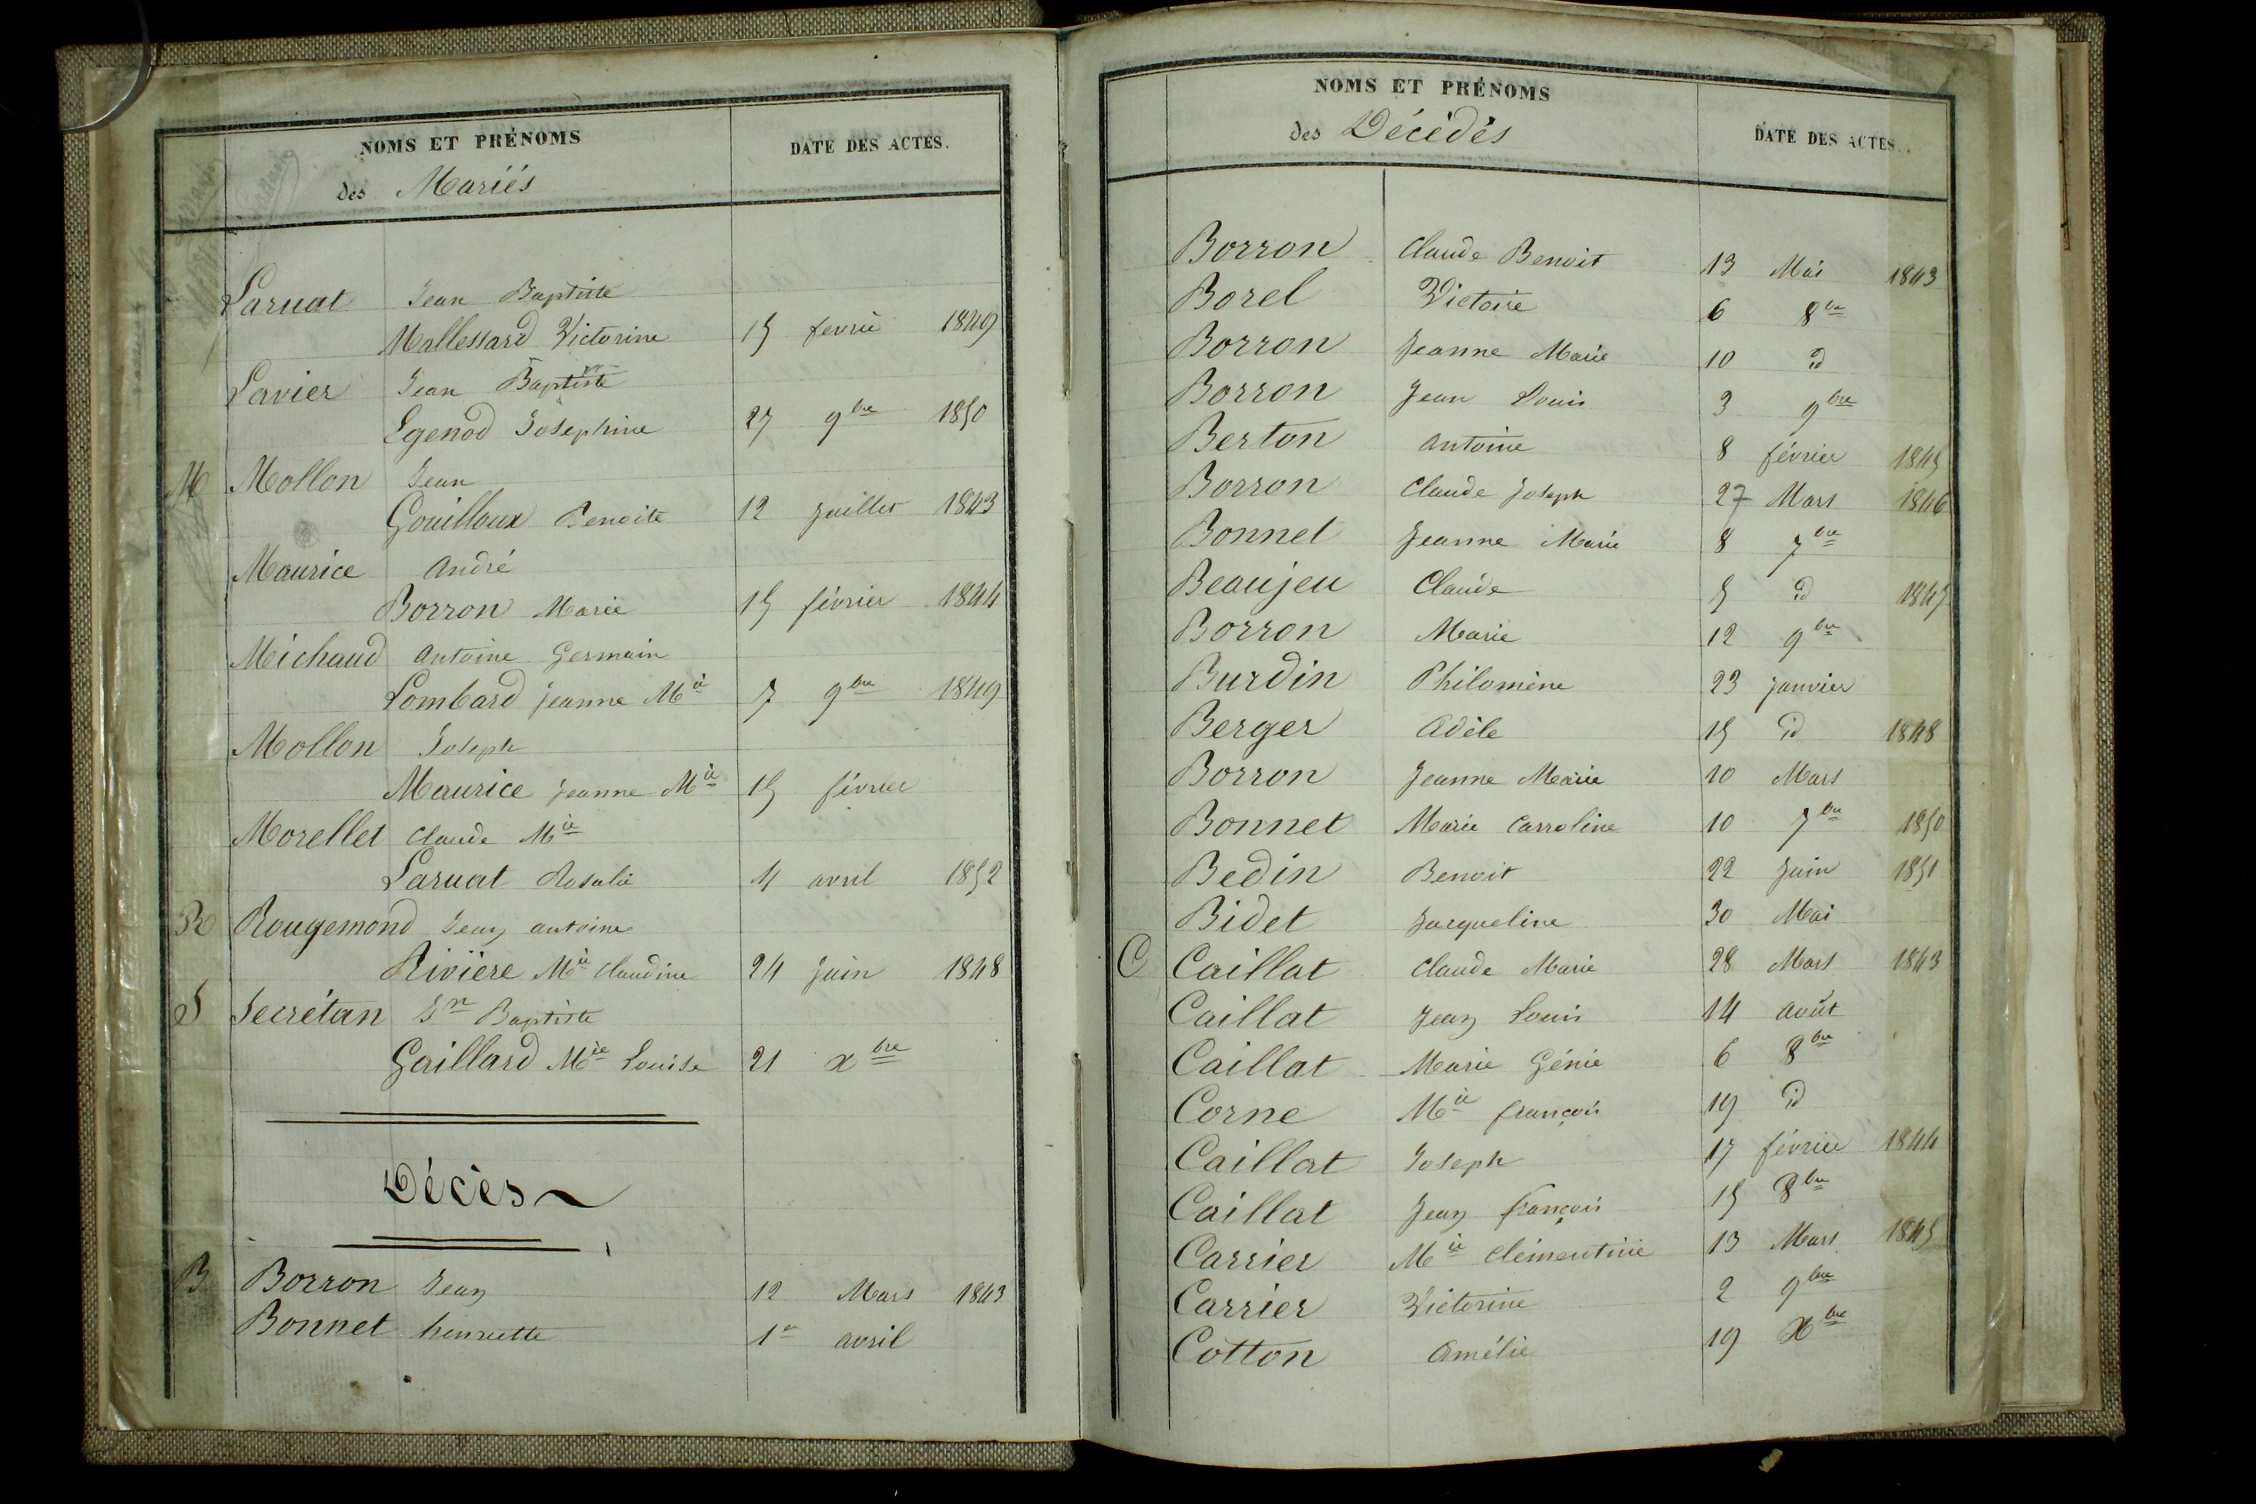 NOMS ET PRÉNOMS
des Mariés
DATE DES ACTES.
Laruat Jean Baptiste
Mallessard Victorine 15 fevrie 1849
Lavier Jean Baptiste
Egenod Josephine 27 9bre 1850
M Mollon Jean
Gouilloux Benoite 12 Juillet 1843
Maurice André
Borron Marie 15 février 1844
Michaud Antoine Germain
Lombard Jeanne Mie 7 9bre 1849
Mollon Joseph
Maurice Jeanne Mie 15 février
Morellet Claude Mie
Laruat Rosalie 4 avril 1852
R Rougemond Jean antoine
Rivière Mie Claudine 24 Juin 1848
S Secrétan Jn Baptiste
Gaillard Mie Louise 21 xbre
Décès
B Borron Jean 12 Mars 1843
Bonnet henriette 1er avril
NOMS ET PRÉNOMS
des Décédés
DATE DES ACTES.
Borron Claude Benoit 13 Mai 1843
Borel Victoire 6 8bre
Borron Jeanne Marie 10 id
Borron Jean Louis 3 9bre
Berton antoine 8 février 1845
Borron Claude Joseph 27 Mars 1846
Bonnet Jeanne Marie 8 7bre
Beaujeu Claude 5 id 1847
Borron Marie 12 9bre
Burdin Philomène 23 Janvier
Berger Adèle 15 id 1848
Borron Jeanne Marie 10 Mars
Bonnet Marie Carroline 10 7bre 1850
Bedin Benoit 22 Juin 1851
Bidet Jacqueline 30 Mai
C Caillat Claude Marie 28 Mars 1843
Caillat Jean Louis 14 août
Caillat Marie Génie 6 8bre
Corne Mie françois 19 id
Caillat Joseph 17 février 1844
Caillat Jean françois 15 8bre
Carrier Mie Clémentine 13 Mars 1845
Carrier Victorine 2 9bre
Cotton Amélie 19 Xbre